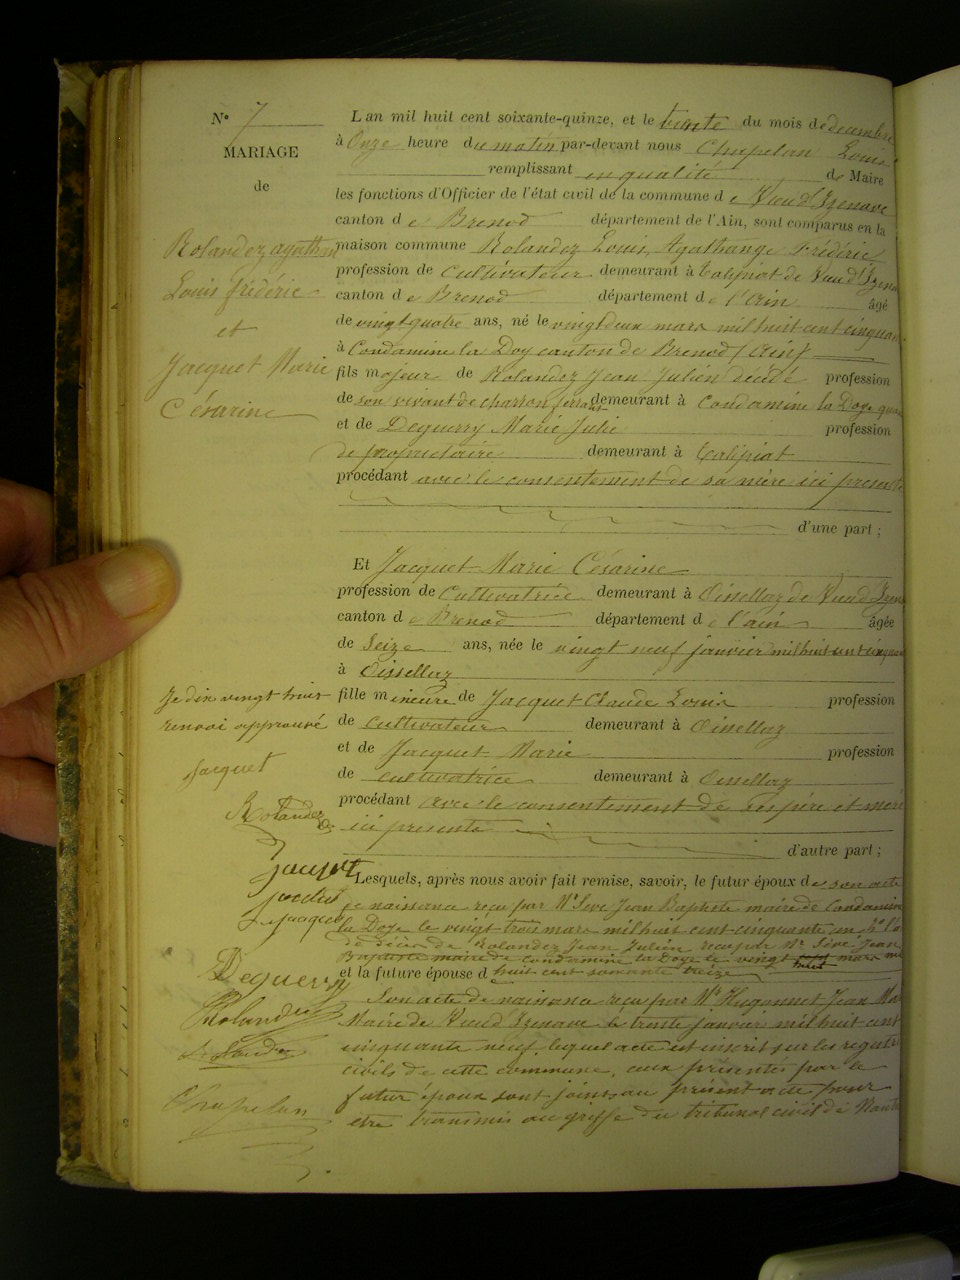 N° 7
MARIAGE
de
Rolandez agathan
Louis frédéric
et
Jacquet Marie
Césarine
L an mil huit cent soixante-quinze, et le trente du mois de decembre
à Onze heure du matin par-devant nous Chapelan Louis
remplissant en qualité de Maire
les fonctions d'Officier de l'état civil de la commune d e Vieu d'Izenave
canton d e Brenod département de l'Ain, sont comparus en la
maison commune Rolandez Louis, Agathange Frédéric
profession de Cultivateur demeurant à Talipiat de Vieu d'Izena
canton d e Brenod département d e l'Ain âgé
de vingt quatre ans, né le vingt deux mars mil huit cent cinquan
à Condamine la Doy canton de Brenod (Ain)
fils majeur de Rolandez Jean Julien décédé profession
de son vivant de charron ferrant demeurant à Condamine la Doye
et de Deguerry Marie Julie profession
de propriétaire demeurant à Talipiat
procédant avec le consentement de sa mère ici présente
d'une part ;
Et Jacquet Marie Césarine
profession de Cultivatrice demeurant à Oisellaz de Vieu d'Izen
canton d e Brenod département d e l'ain âgée
de Seize ans, née le vingt neuf janvier mil huit cent cinquan
à Oissellaz
fille mineure de Jacquet Claude Louis profession
de cultivateur demeurant à Oisellaz
et de Jacquet Marie profession
de cultivatrice demeurant à Oisellaz
procédant avec le consentement de ses père et mère
ici présents
d'autre part ;
Lesquels, après nous avoir fait remise, savoir, le futur époux de son acte
de naissance reçu par Mr Seve Jean Baptiste maire de Condamine
la Doye le vingt trois mars mil huit cent cinquante un 2°
de décès de Rolandez Jean Julien reçu par Mr Sève Jean
Baptiste maire de Condamine la Doye le vingt huit mars mil
et la future épouse d huit cent soixante treize
Son acte de naissance reçu par Mr Hugonnet Jean
Maire de Vieu d'Izenave le trente janvier mil huit cent
cinquante neuf, lequel acte est inscrit sur les registres
civils de cette commune, ceux présentés par le
futur époux sont joints au présent acte pour
etre transmis au greffe du tribunal civil de Nantua
Je dix vingt huit
renvoi approuvé
Jacquet
Rolandez
jacquet
Jacquet
Deguerry
Rolandez
Chapelan